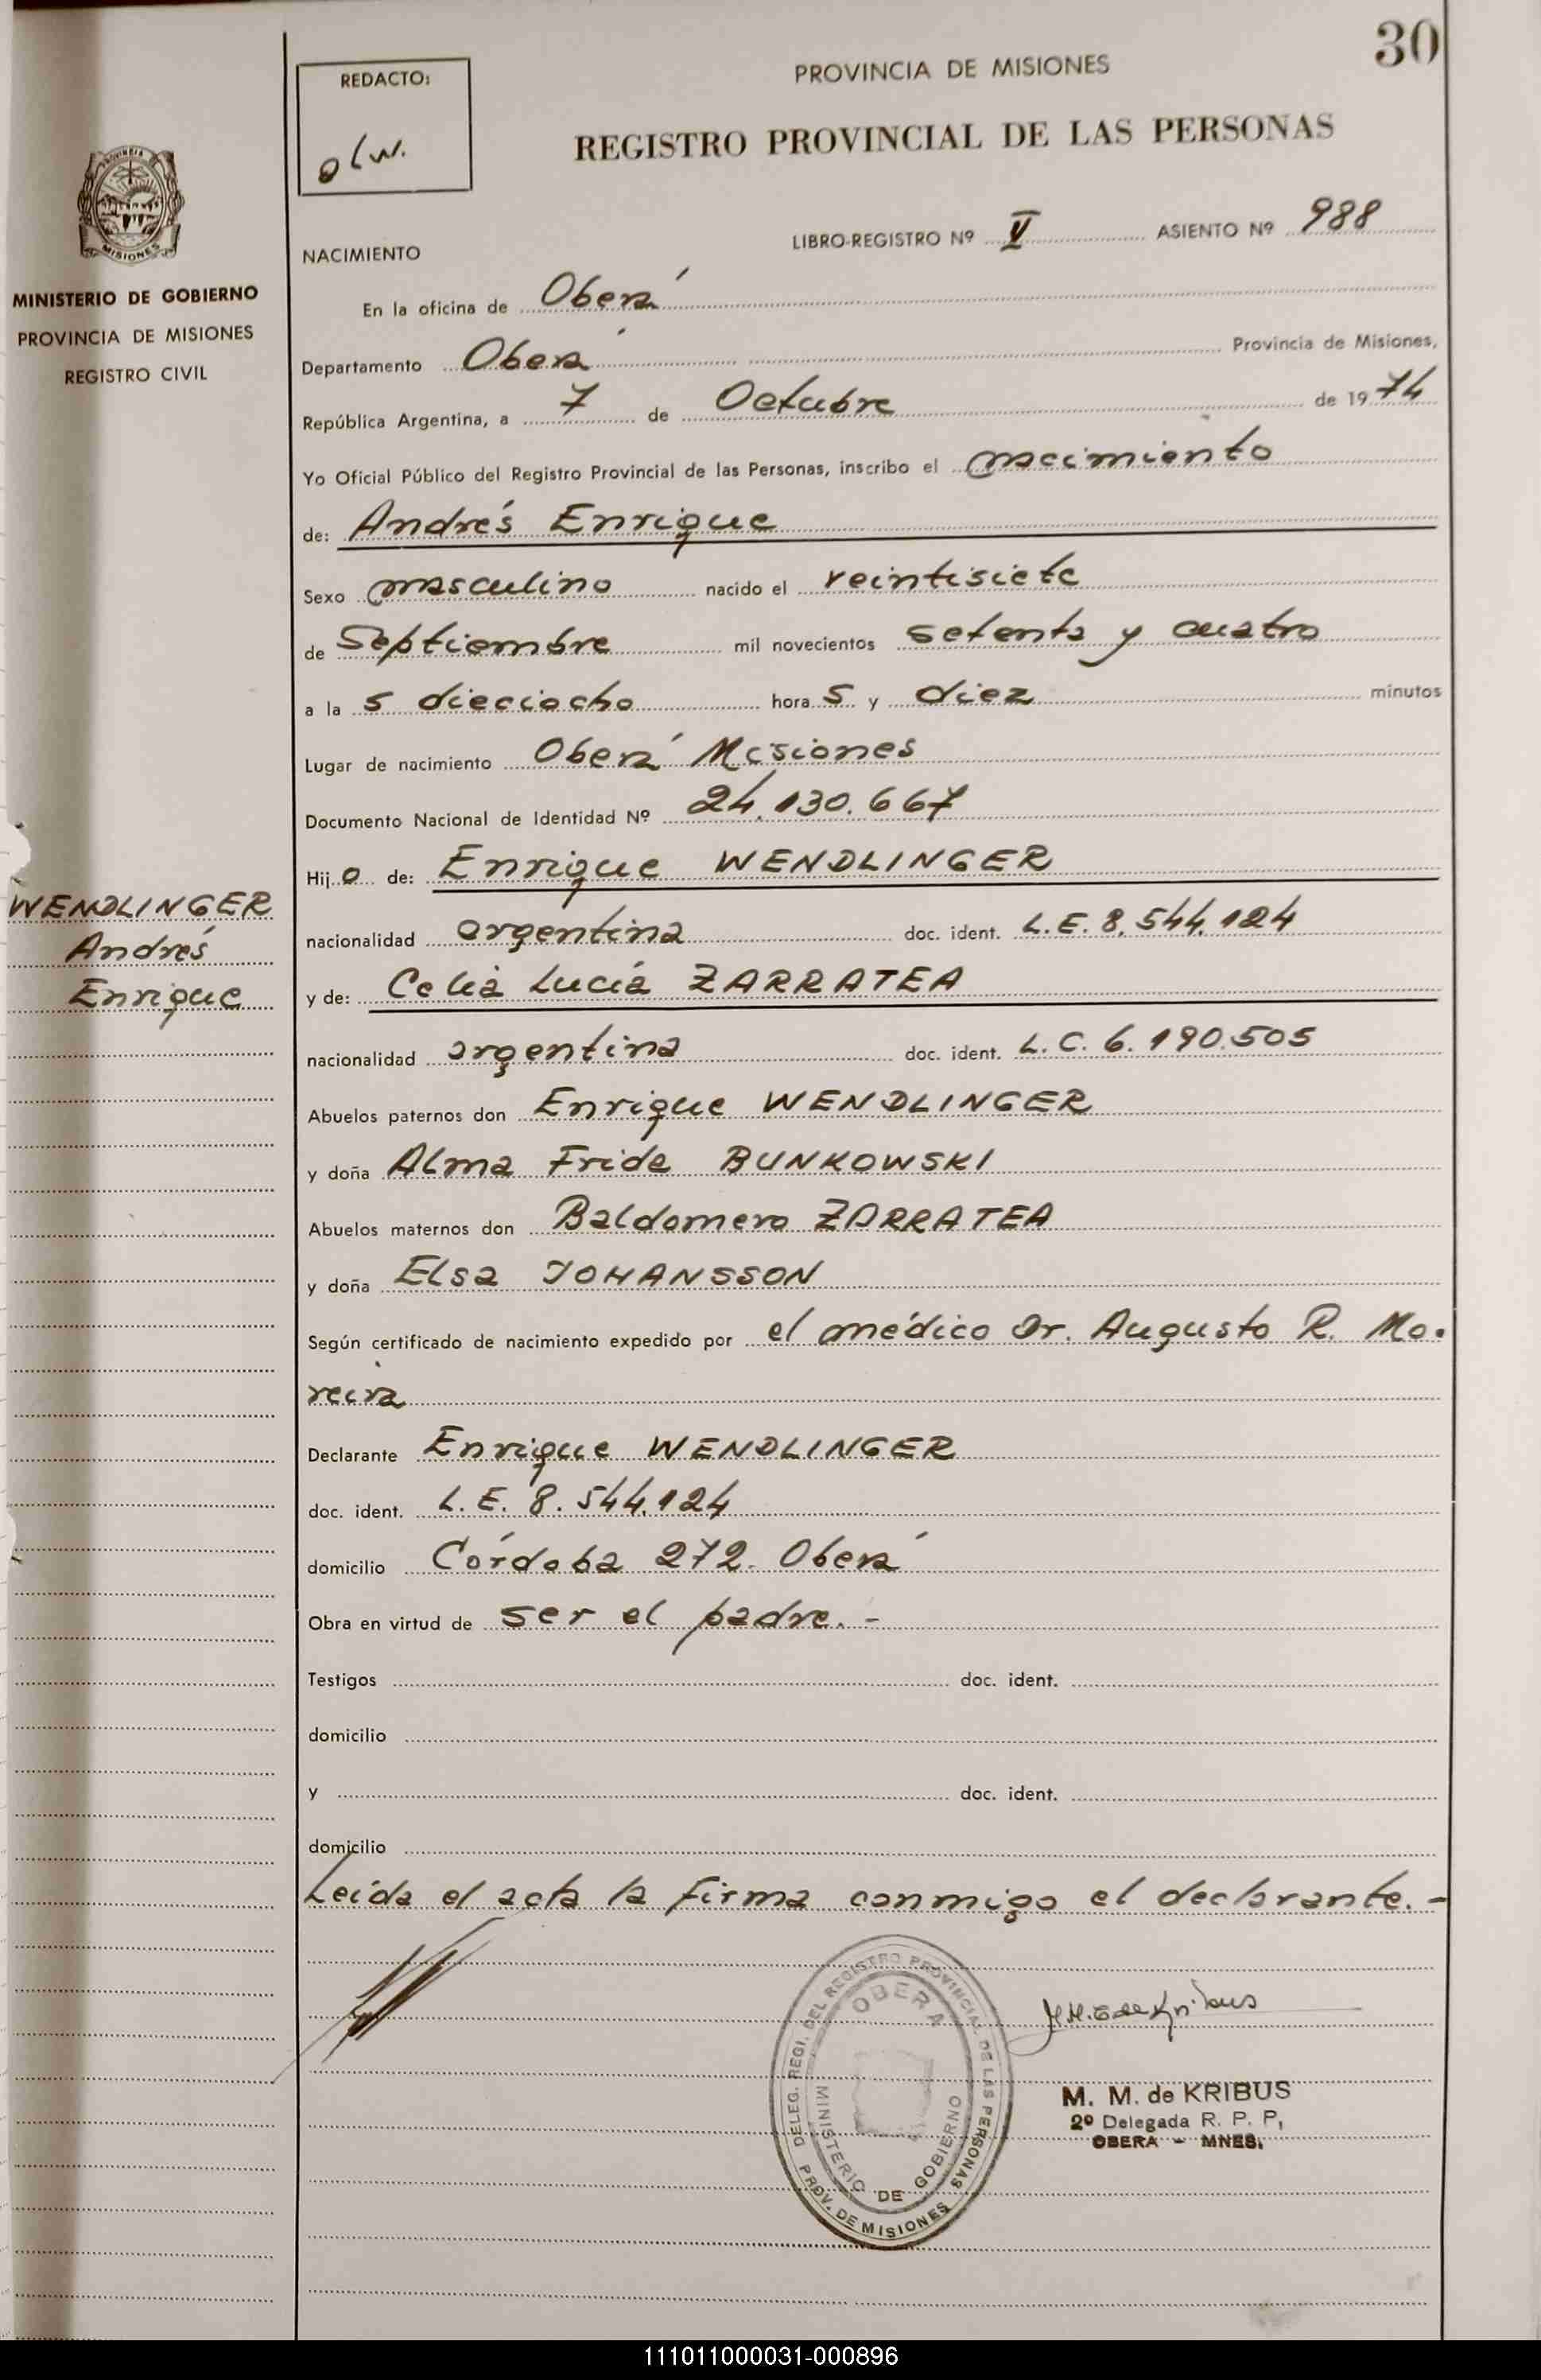 30
REDACTO:
olw.
PROVINCIA DE MISIONES
REGISTRO PROVINCIAL DE LAS PERSONAS
PROVINCIA DE
MISIONES
MINISTERIO DE GOBIERNO
PROVINCIA DE MISIONES
REGISTRO CIVIL
NACIMIENTO
LIBRO-REGISTRO Nº V ASIENTO Nº 988
En la oficina de Oberá
Departamento Oberá Provincia de Misiones,
República Argentina, a 7 de Octubre de 1974
Yo Oficial Público del Registro Provincial de las Personas, inscribo el nacimiento
de: Andrés Enrique
Sexo masculino nacido el veintisiete
de Septiembre mil novecientos setenta y cuatro
a la s dieciocho hora s y diez minutos
Lugar de nacimiento Oberá Misiones
Documento Nacional de Identidad Nº 24.130.667
Hijo de: Enrique WENDLINGER
WENDLINGER
Andrés
Enrique
nacionalidad argentina doc. ident. L.E. 8.544.124
y de: Celia Lucía ZARRATEA
nacionalidad argentina doc. ident. L.C. 6.190.505
Abuelos paternos don Enrique WENDLINGER
y doña Alma Frida BUNKOWSKI
Abuelos maternos don Baldomero ZARRATEA
y doña Elsa JOHANSSON
Según certificado de nacimiento expedido por el médico Dr. Augusto R. Mo-
reira
Declarante Enrique WENDLINGER
doc. ident. L.E. 8.544.124
domicilio Córdoba 272. Oberá
Obra en virtud de ser el padre.-
Testigos doc. ident.
domicilio
y doc. ident.
domicilio
Leída el acta la firma conmigo el declarante.-
DELEG. REGI. DEL REGISTRO PROVINCIAL DE LAS PERSONAS
OBERA
MINISTERIO DE GOBIERNO
PROV. DE MISIONES
M. M. de KRIBUS
2º Delegada R. P. P,
OBERA - MNES.
111011000031-000896